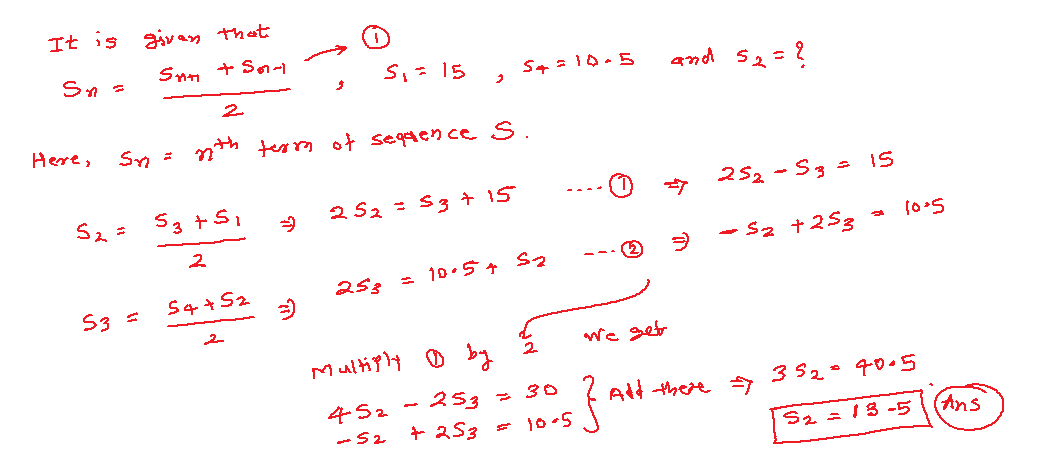 It is given that
Sn = (Sn+1 + Sn-1)/2 → ① , S1 = 15 , S4 = 10.5 and S2 = ?
Here, Sn = nth term of sequence S.
S2 = (S3 + S1)/2 ⇒ 2S2 = S3 + 15 ....① ⇒ 2S2 - S3 = 15
S3 = (S4 + S2)/2 ⇒ 2S3 = 10.5 + S2 ...② ⇒ -S2 + 2S3 = 10.5
Multiply ① by 2 we get
4S2 - 2S3 = 30
-S2 + 2S3 = 10.5 } Add there ⇒ 3S2 = 40.5
S2 = 13.5 Ans